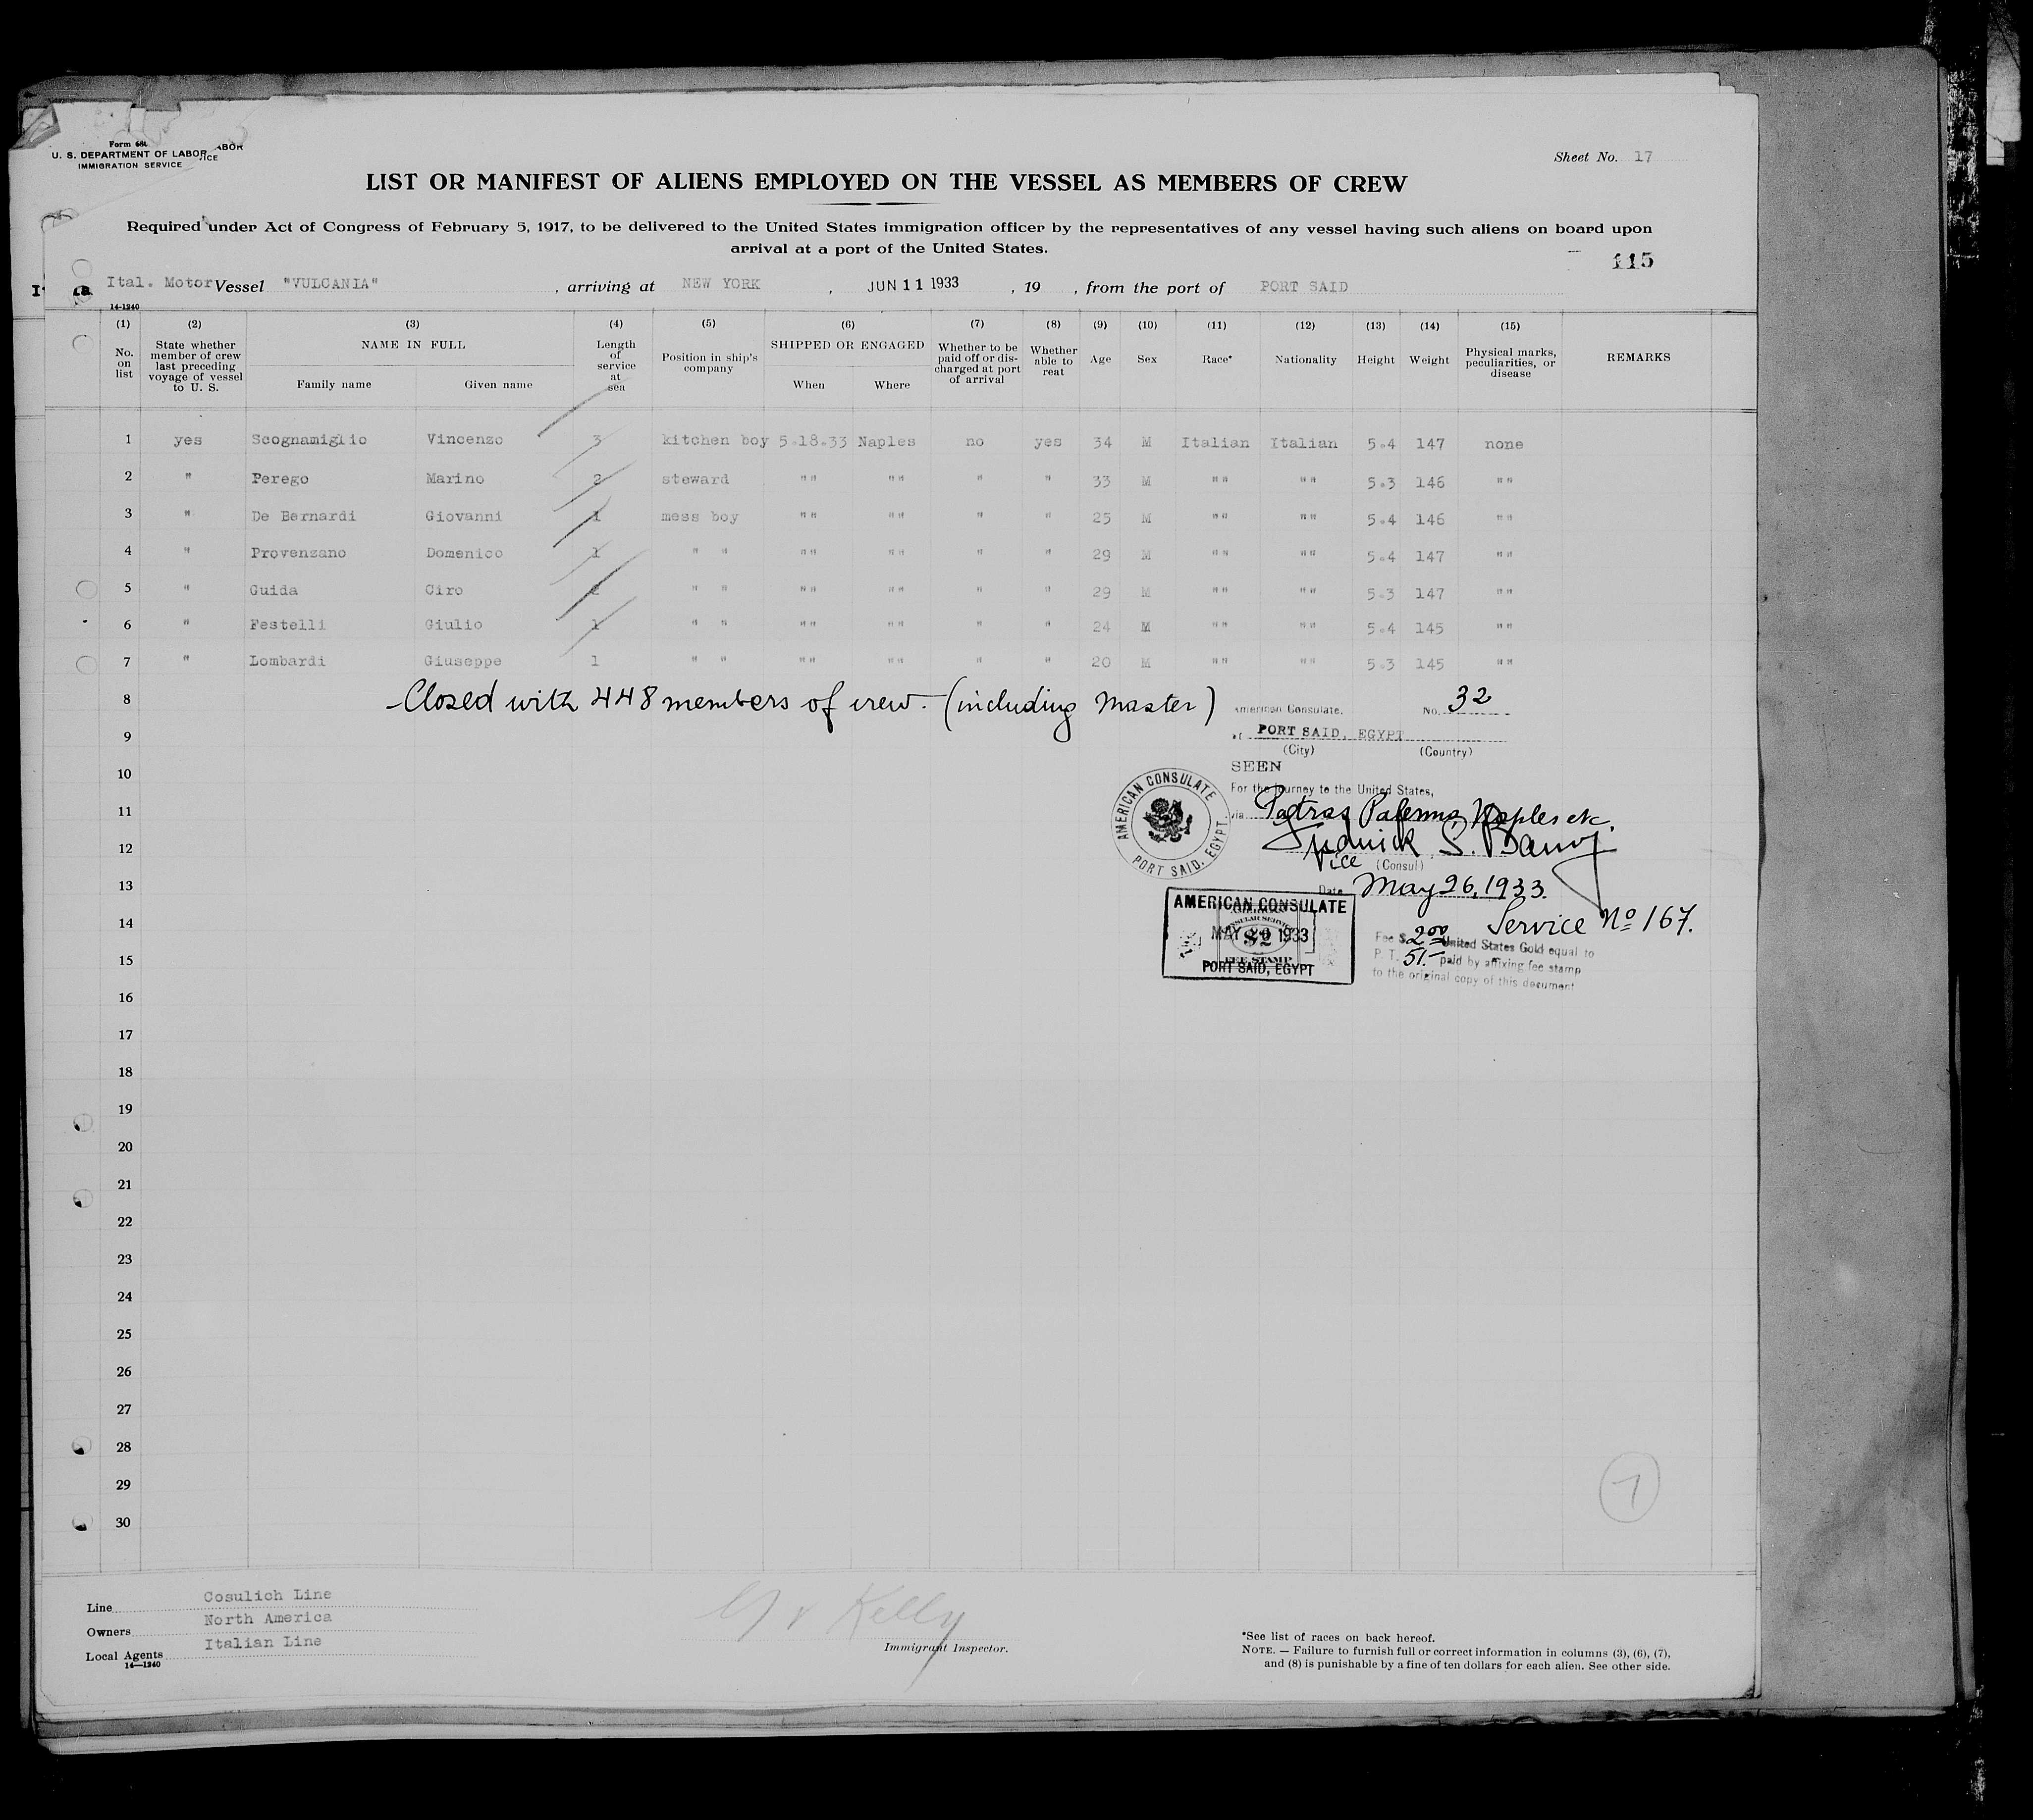 Form 680
U. S. DEPARTMENT OF LABOR
IMMIGRATION SERVICE
Sheet No. 17
LIST OR MANIFEST OF ALIENS EMPLOYED ON THE VESSEL AS MEMBERS OF CREW
Required under Act of Congress of February 5, 1917, to be delivered to the United States immigration officer by the representatives of any vessel having such aliens on board upon
arrival at a port of the United States.
115
Ital. Motor Vessel "VULCANIA" , arriving at NEW YORK , JUN 11 1933 , 19 , from the port of PORT SAID
14-1240
(1) (2) (3) (4) (5) (6) (7) (8) (9) (10) (11) (12) (13) (14) (15)
No. on list State whether member of crew last preceding voyage of vessel to U. S. NAME IN FULL Family name Given name Length of service at sea Position in ship's company SHIPPED OR ENGAGED When Where Whether to be paid off or discharged at port of arrival Whether able to read Age Sex Race* Nationality Height Weight Physical marks, peculiarities, or disease REMARKS
1 yes Scognamiglio Vincenzo 3 kitchen boy 5.18.33 Naples no yes 34 M Italian Italian 5.4 147 none
2 " Perego Marino 2 steward "" "" " " 33 M "" "" 5.3 146 ""
3 " De Bernardi Giovanni 1 mess boy "" "" " " 25 M "" "" 5.4 146 ""
4 " Provenzano Domenico 1 " " "" "" " " 29 M "" "" 5.4 147 ""
5 " Guida Ciro 2 " " "" "" " " 29 M "" "" 5.3 147 ""
6 " Festelli Giulio 1 " " "" "" " " 24 M "" "" 5.4 145 ""
7 " Lombardi Giuseppe 1 " " "" "" " " 20 M "" "" 5.3 145 ""
8 Closed with 448 members of crew. (including Master)
9
10
11
12
13
14
15
16
17
18
19
20
21
22
23
24
25
26
27
28
29
30
American Consulate. No. 32
at PORT SAID, EGYPT
(City) (Country)
SEEN
For the journey to the United States,
via Patras Palermo, Naples etc.
Vice (Consul)
Date May 26, 1933.
Service No 167.
AMERICAN CONSULATE
PORT SAID, EGYPT.
AMERICAN CONSULATE
MAY 1933
$2
FEE STAMP
PORT SAID, EGYPT
Fee $ 2.00 United States Gold equal to
P. T. 51.- paid by affixing fee stamp
to the original copy of this document
7
Line Cosulich Line
Owners North America
Local Agents Italian Line
14-1240
Kelly
Immigrant Inspector.
*See list of races on back hereof.
NOTE. — Failure to furnish full or correct information in columns (3), (6), (7),
and (8) is punishable by a fine of ten dollars for each alien. See other side.